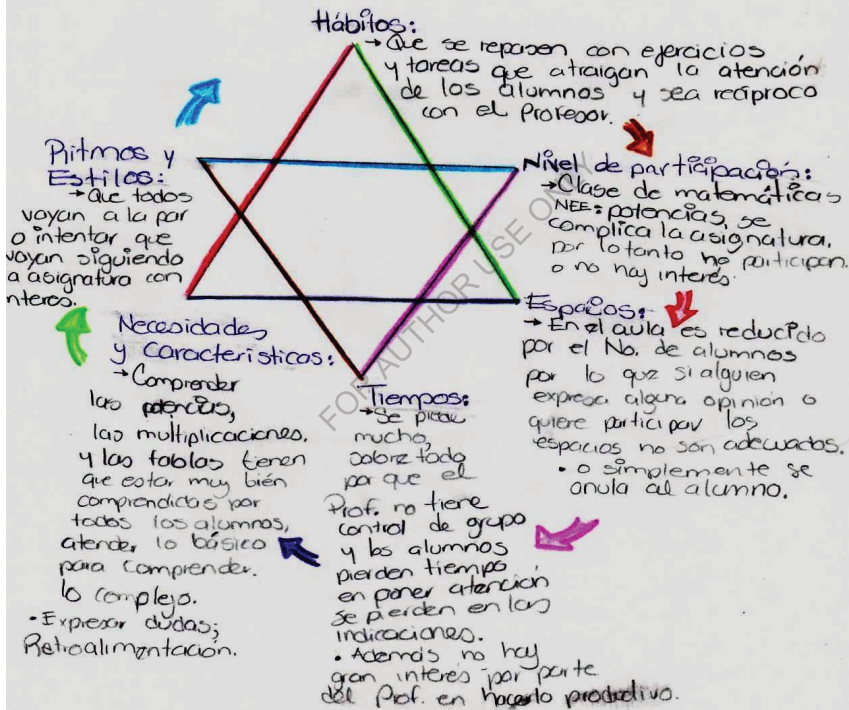 Hábitos:
→ Que se repasen con ejercicios
y tareas que atraigan la atención
de los alumnos y sea recíproco
con el Profesor.
Nivel de participación:
→ Clase de matemáticas
NEE: potencias, se
complica la asignatura,
por lo tanto no participan
o no hay interés.
Espacios:
→ En el aula es reducido
por el No. de alumnos
por lo que si alguien
expresa alguna opinión o
quiere participar los
espacios no son adecuados.
• o simplemente se
anula al alumno.
Tiempos:
→ Se pierde
mucho,
sobre todo
por que el
Prof. no tiene
control de grupo
y los alumnos
pierden tiempo
en poner atención
se pierden en las
indicaciones.
• Además no hay
gran interés por parte
del Prof. en hacerlo productivo.
Necesidades
y características:
→ Comprender
las potencias,
las multiplicaciones.
y las tablas tienen
que estar muy bién
comprendidas por
todos los alumnos,
atender lo básico
para comprender.
lo complejo.
• Expresar dudas;
Retroalimentación.
Ritmos y
Estilos:
→ Que todos
vayan a la par
o intentar que
vayan siguiendo
a asignatura con
nteres.
FOR AUTHOR USE ONLY